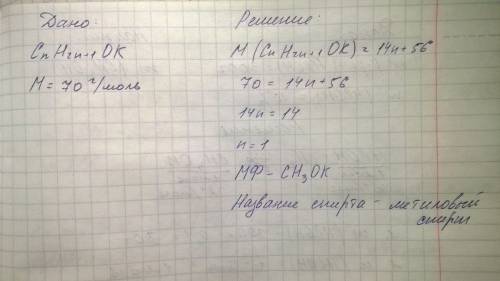 Дано:
CnH2n+1OK
M = 70 г/моль
Решение:
M (CnH2n+1OK) = 14n+56
70 = 14n+56
14n = 14
n = 1
МФ - CH3OK
Название спирта - метиловый
спирт